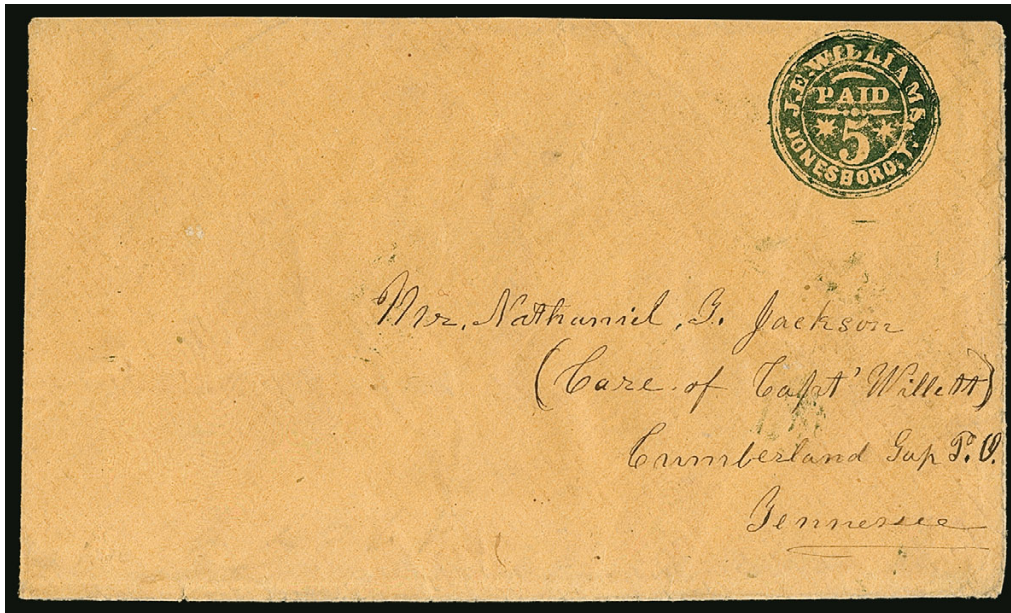 J.F. WILLIAMS,
PAID
5
JONESBORO, T.
Mr. Nathaniel, G. Jackson
(Care of Capt' Willett)
Cumberland Gap P.O.
Tennessee